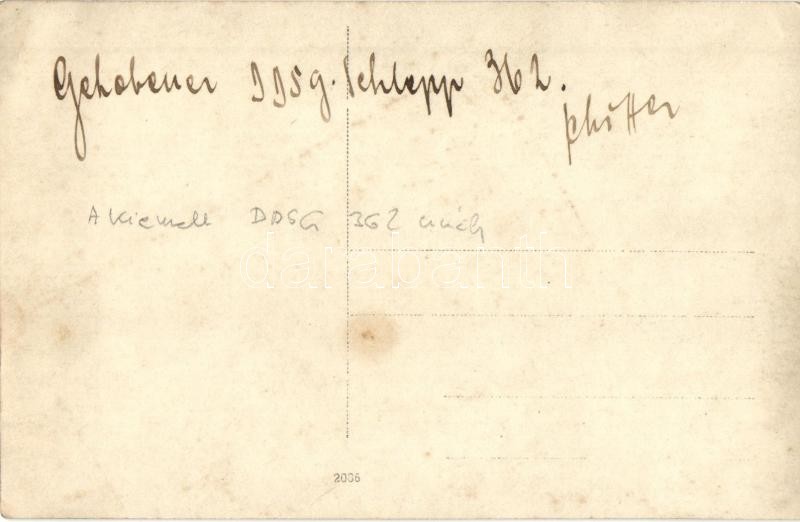 Gehobener DDSG. Schlepp 362.
A kiemelt DDSG 362 uszály
darabanth
2036